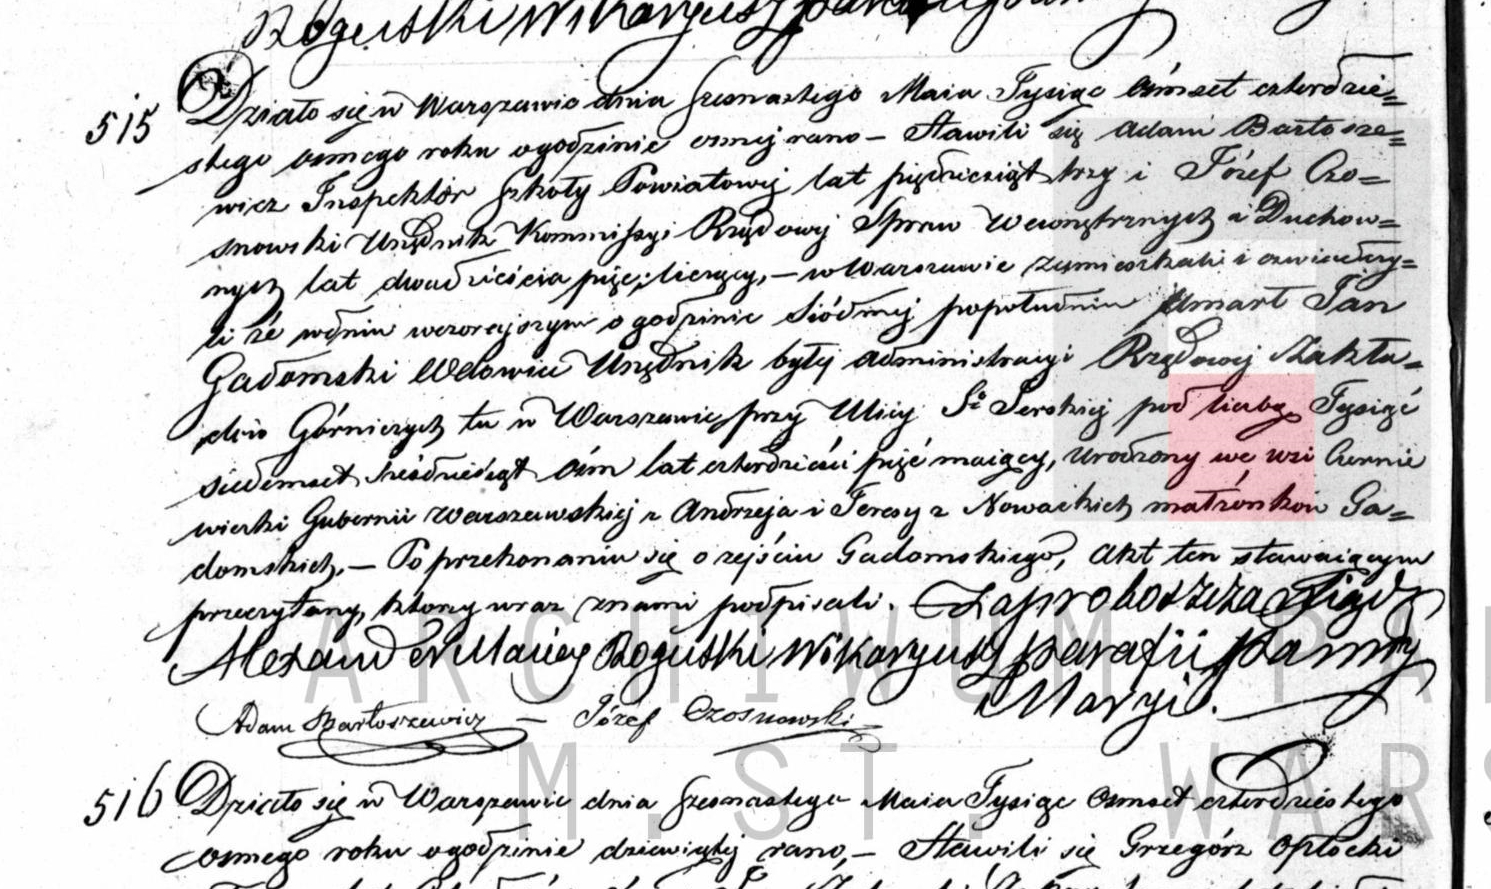 Roguski Wikaryusz
515
Działo się w Warszawie dnia szesnastego Maia Tysiąc ośmset czterdzie=
stego osmego roku o godzinie osmej rano – Stawili się Adam Bartosze=
wicz Inspektor Szkoły Powiatowej lat pięćdziesiąt trzy i Józef Czo=
snowski Urzędnik Kommissyi Rządowej Spraw Wewnętrznych i Duchow=
nych lat dwadzieścia pięć liczący, – w Warszawie zamieszkali i oświadczy=
li że w dniu wczorajszym o godzinie siódmej popołudniu umarł Jan
Gadomski Wdowiec Urzędnik byłej Administracyi Rządowej Zakła=
dów Górniczych tu w Warszawie przy Ulicy Sto Jerskiej pod liczbą Tysiąc
siedemset sześćdziesiąt ośm lat czterdzieści pięć maiący, urodzony we wsi Czernie
wicki Gubernii Warszawskiej z Andrzeja i Teresy z Nowackich małżonków Ga=
domskich. – Po przekonaniu się o zejściu Gadomskiego, Akt ten stawaiącym
przeczytany, który wraz z nami podpisali. Za proboszcza
Alexander Maciej Roguski Wikaryusz parafii Panny
Maryi.
Adam Bartoszewicz – Józef Czosnowski
516
Działo się w Warszawie dnia szesnastego Maia Tysiąc ośmset czterdziestego
osmego roku o godzinie dziewiątej rano, – Stawili się Grzegórz Opłocki
ARCHIWUM PA
M.ST. WARS